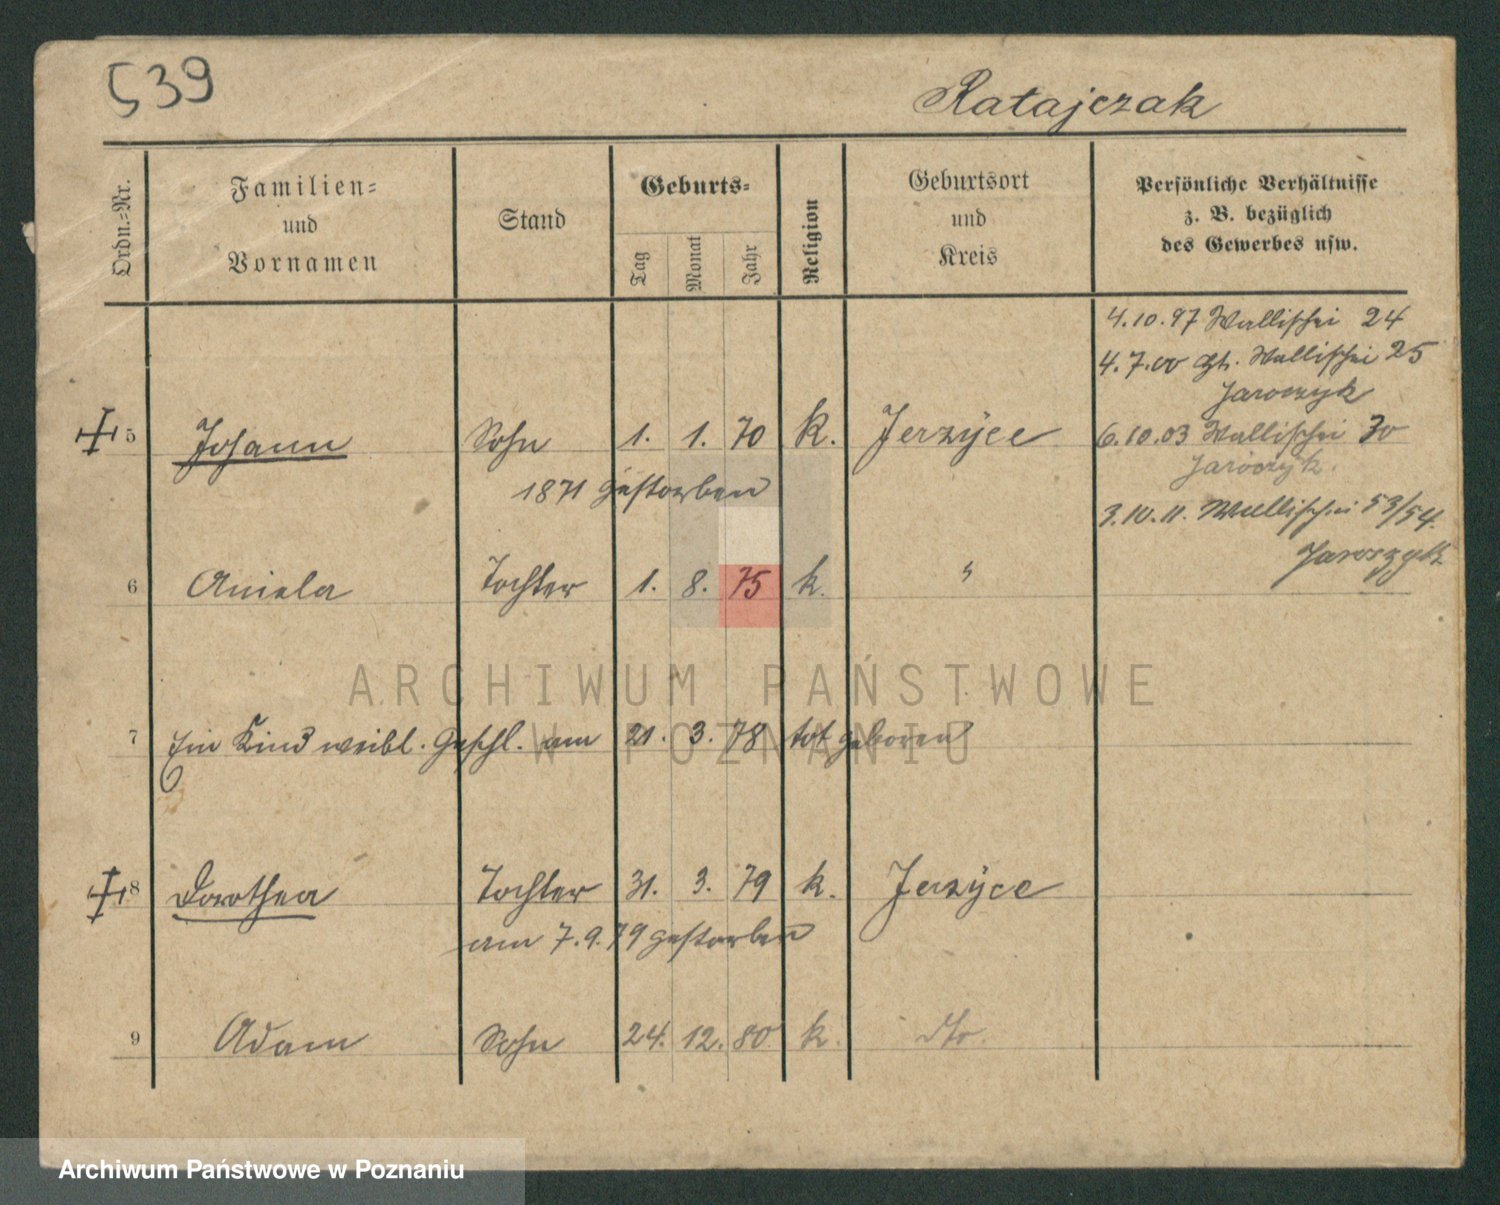 539
Ratajczak
Ordn.-Nr.
Familien-
und
Vornamen
Stand
Geburts-
Tag
Monat
Jahr
Religion
Geburtsort
und
Kreis
Persönliche Verhältnisse
z. B. bezüglich
des Gewerbes usw.
4.10.97 Wallischei 24
4.7.00 Wallischei 25
Jaroczyk
5 Johann Sohn 1. 1. 70 k. Jerzyce 6.10.03 Wallischei 30
Jaroczyk.
1871 gestorben
3.10.11. Wallischei 53/54.
Jaroszyk
6 Aniela Tochter 1. 8. 75 k. "
ARCHIWUM PAŃSTWOWE
W POZNANIU
7 Ein Kind weibl. Geschl. am 21. 3. 78 tot geboren
8 Dorothea Tochter 31. 3. 79 k. Jerzyce
am 7.9.79 gestorben
9 Adam Sohn 24. 12. 80 k. dto.
Archiwum Państwowe w Poznaniu